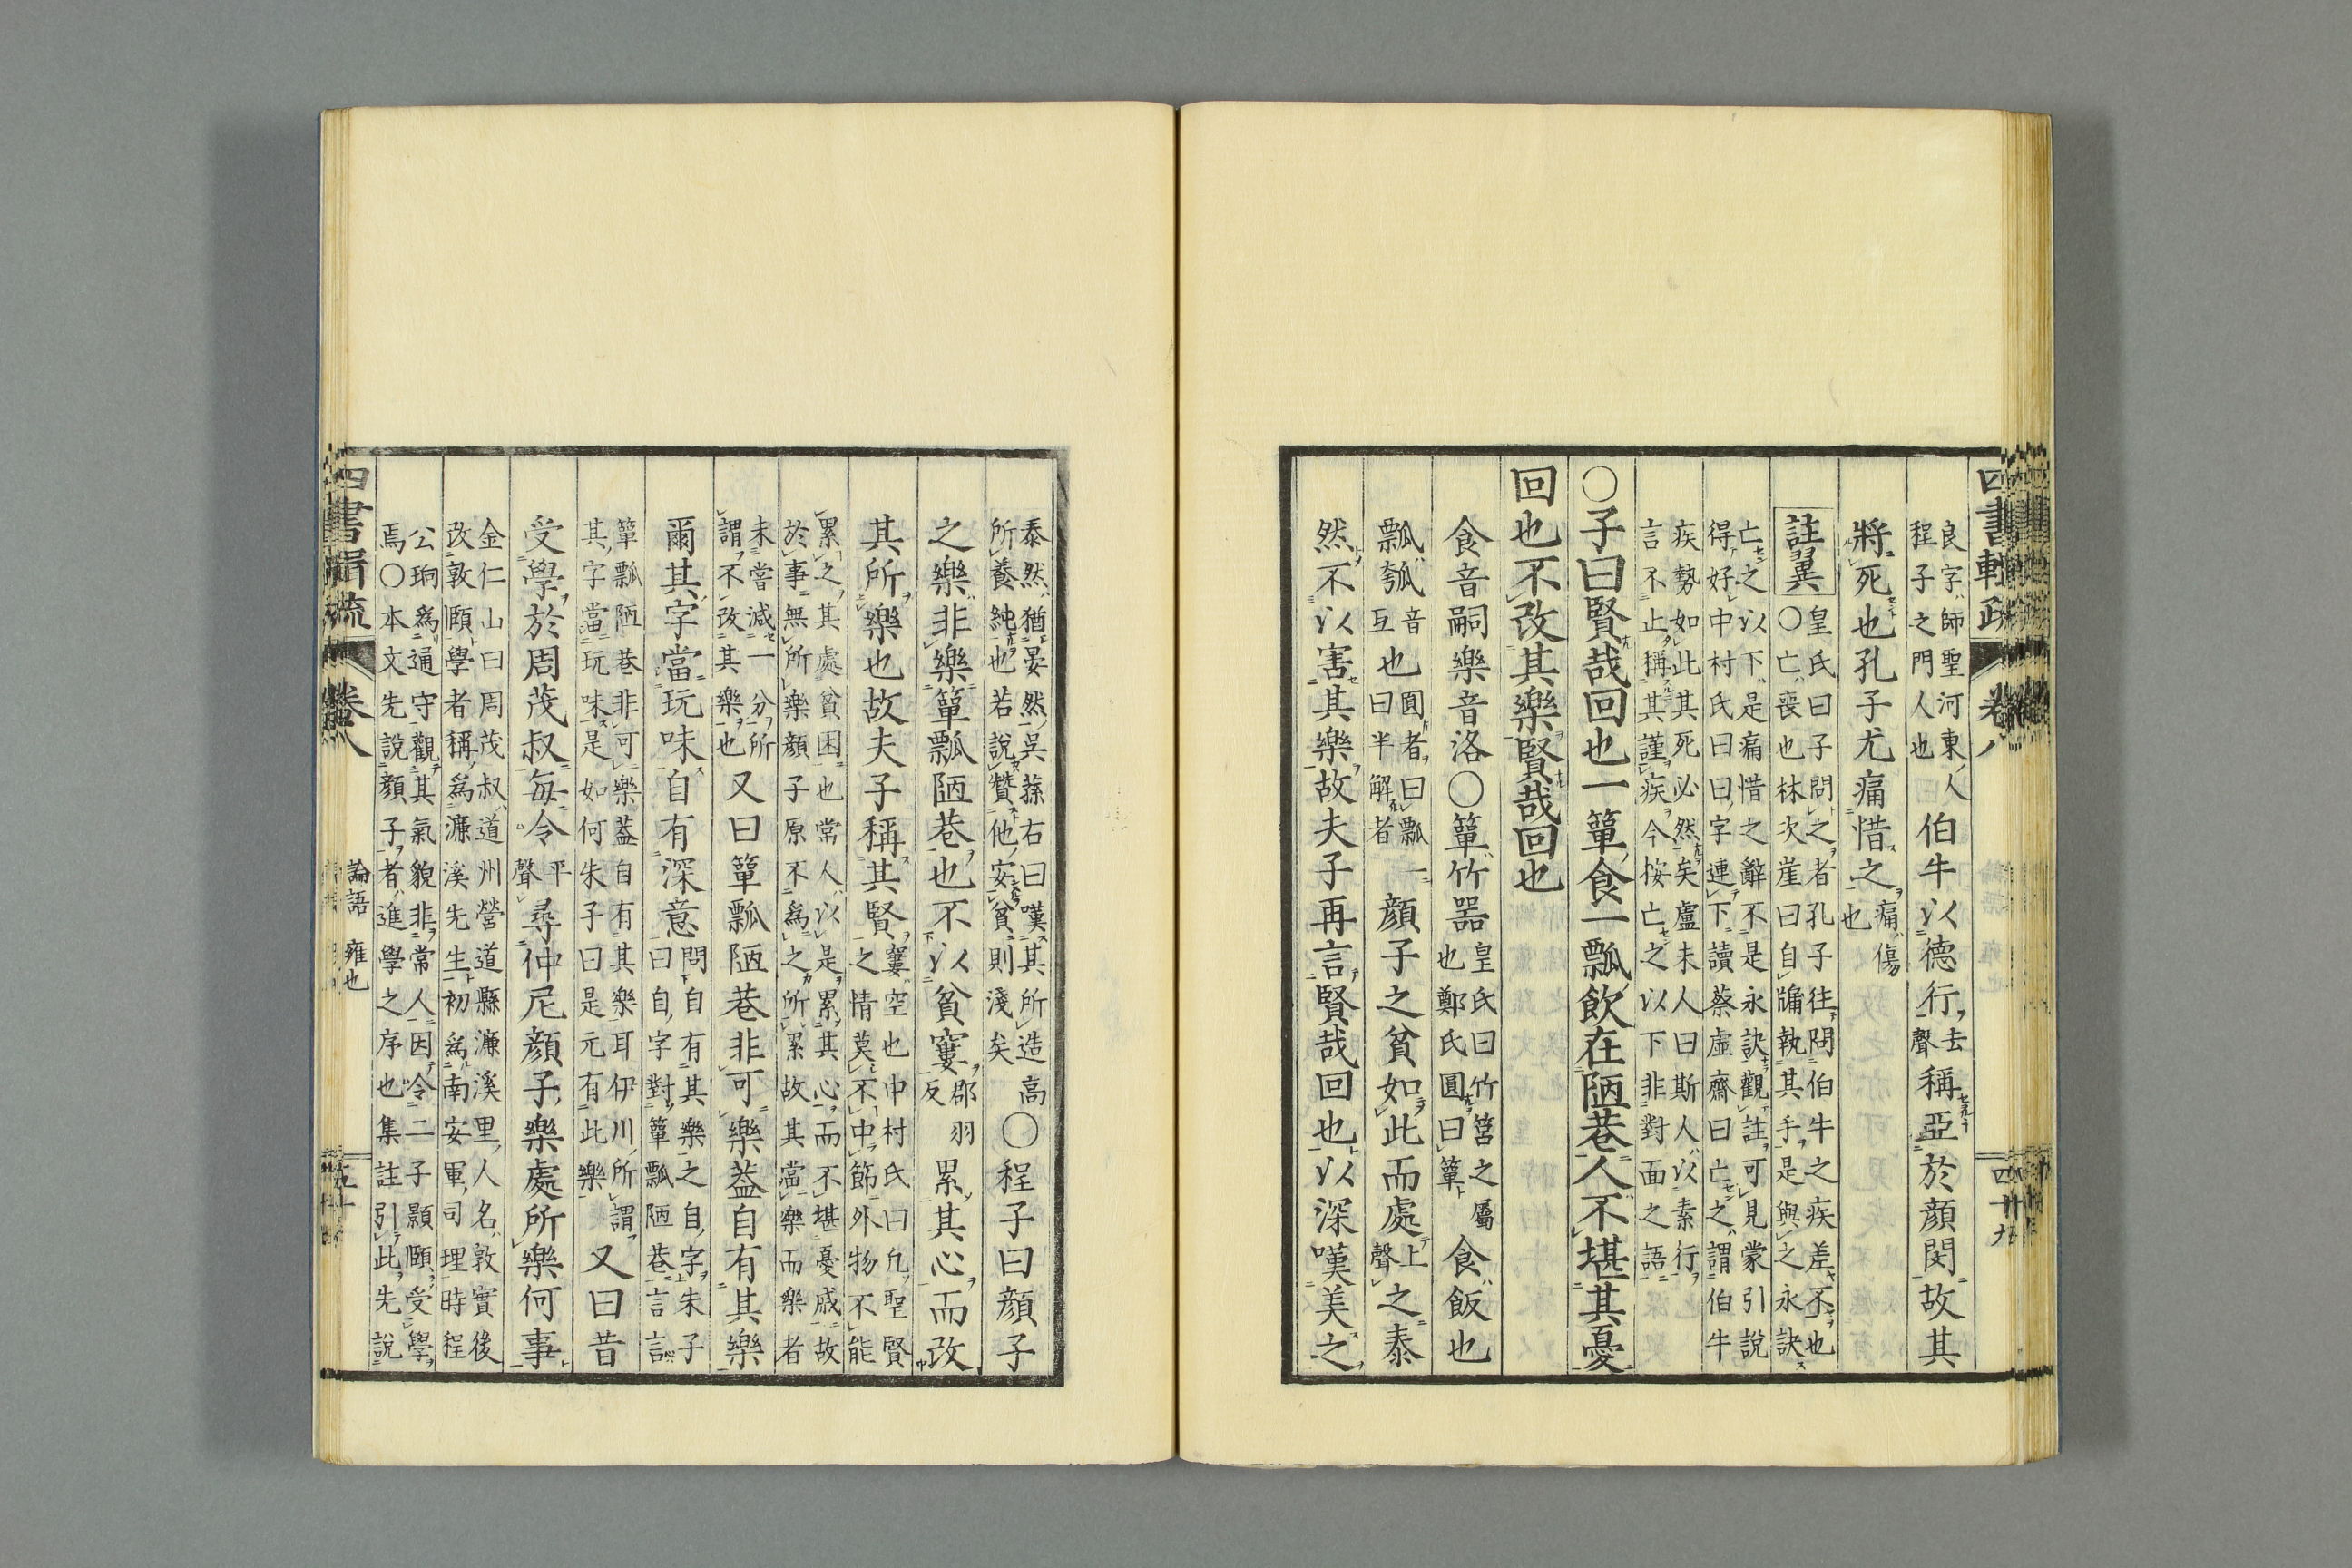 四書輯疏 卷八 四十九
良字師聖河東人
程子之門人也
伯牛以德行去聲稱亞於顏閔故其
將死也孔子尤痛惜之痛傷也
註翼
皇氏曰子問之者孔子往問伯牛之疾差不也
○亡喪也林次崖曰自牖執其手是與之永訣
亡之以下是痛惜之辭不是永訣觀註可見蒙引說
得好中村氏曰曰字連下讀蔡虛齋曰亡之謂伯牛
疾勢如此其死必然矣盧未人曰斯人以素行
言不止稱其謹疾今按亡之以下非對面之語
○子曰賢哉回也一簞食一瓢飲在陋巷人不堪其憂
回也不改其樂賢哉回也
食音嗣樂音洛○簞竹器皇氏曰竹筥之屬也鄭氏圓曰簞食飯也
瓢瓠音互也圓者曰瓢一曰半解者顏子之貧如此而處上聲之泰
然不以害其樂故夫子再言賢哉回也以深嘆美之
泰然猶晏然吳蓀右曰嘆其所造高
所養純也若說贊他安貧則淺矣
○程子曰顏子
之樂非樂簞瓢陋巷也不以貧窶郡羽反累其心而改
其所樂也故夫子稱其賢窶空也中村氏曰凡聖賢
之情莫不中節外物不能
累之其處貧困也常人以是累其心而不堪憂戚故
於事無所樂顏子原不爲之所累故其當樂而樂者
未嘗減一分所
謂不改其樂也
又曰簞瓢陋巷非可樂蓋自有其樂
爾其字當玩味自有深意問自有其樂之自字朱子
曰自字對簞瓢陋巷言言
簞瓢陋巷非可樂蓋自有其樂耳伊川所謂
其字當玩味是如何朱子曰是元有此樂
又曰昔
受學於周茂叔每令平聲尋仲尼顏子樂處所樂何事
金仁山曰周茂叔道州營道縣濂溪里人名敦實後
改敦頤學者稱爲濂溪先生初爲南安軍司理時程
公珦爲通守觀其氣貌非常人因令二子顥頤受學
焉○本文先說顏子者進學之序也集註引此先說
四書輯疏 卷八 論語 雍也 五十